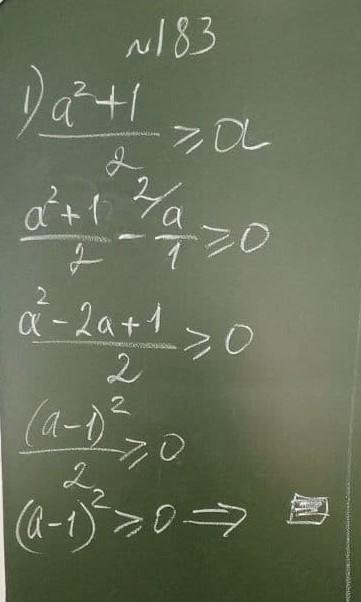 №183
1) (a²+1)/2 ≥ a
(a²+1)/2 - ²/a/1 ≥ 0
(a²-2a+1)/2 ≥ 0
(a-1)²/2 ≥ 0
(a-1)² ≥ 0 ⇒